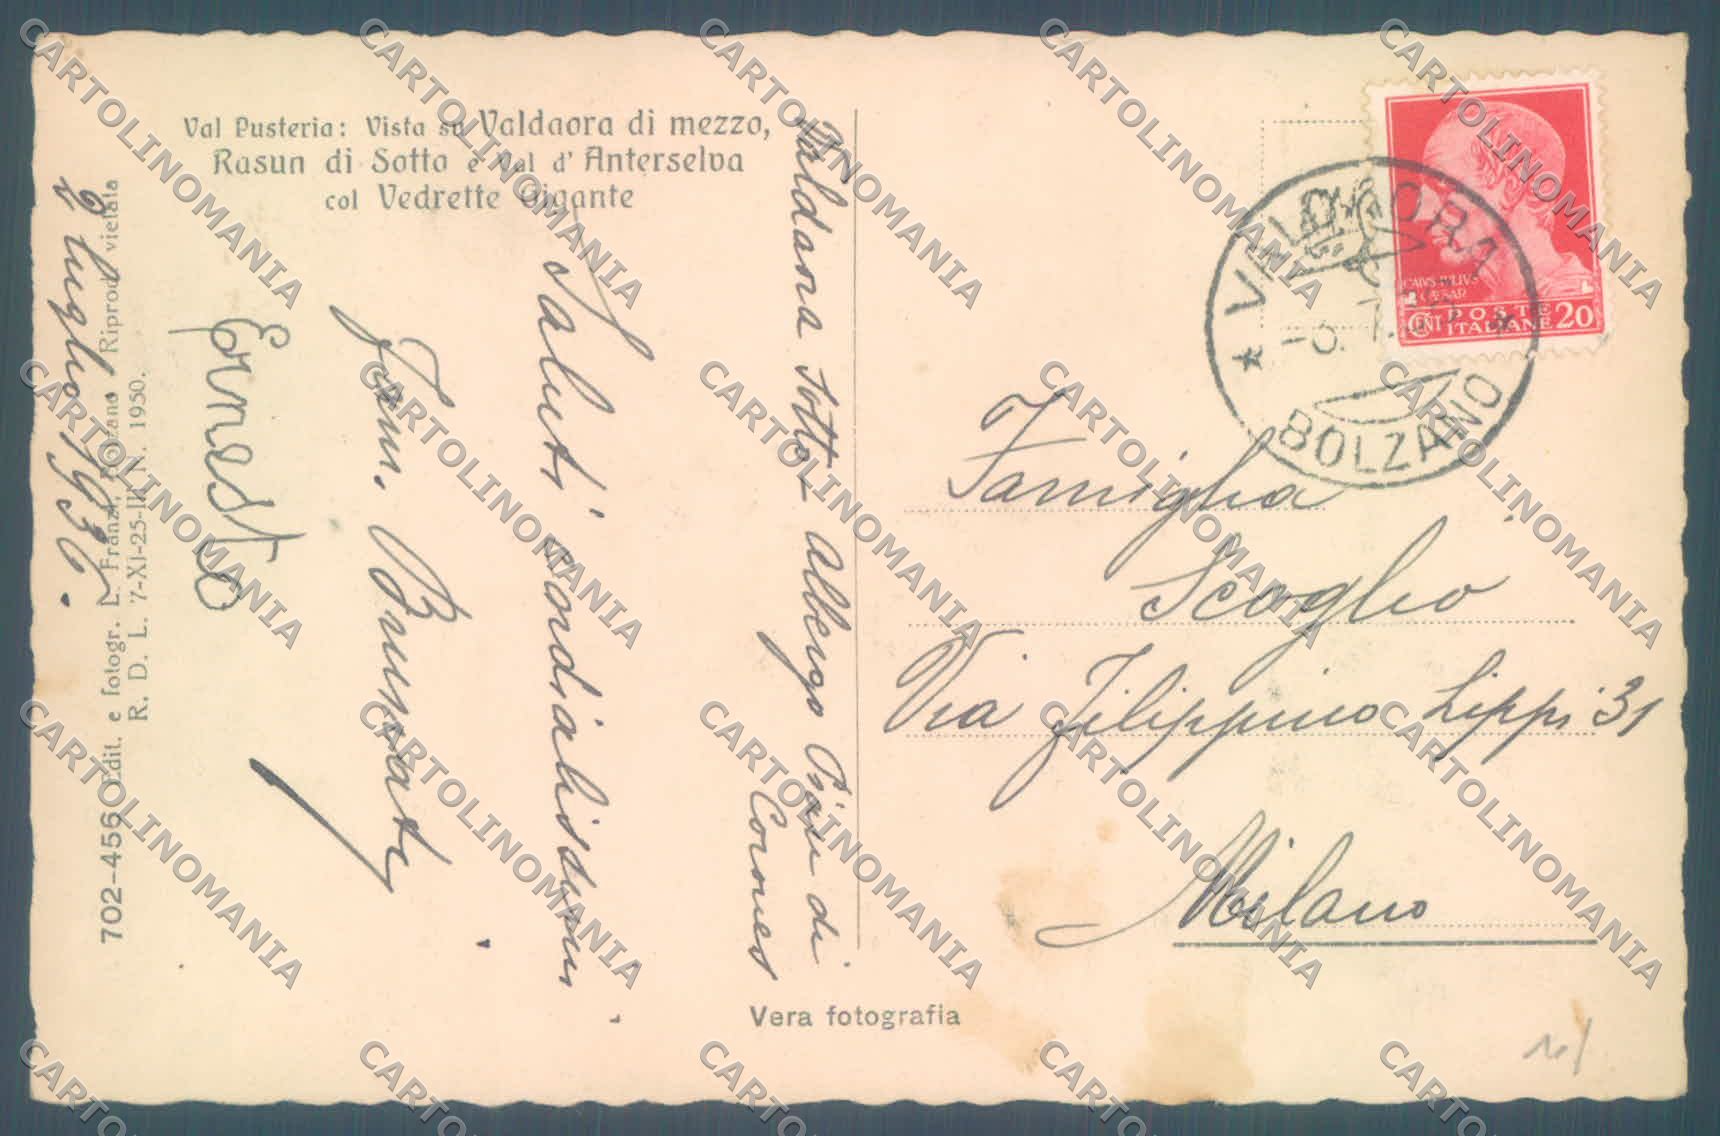 Val Pusteria: Vista su Valdaora di mezzo,
Rasun di Sotto e Val d' Anterselva
col Vedrette Gigante
Valdaora Sotto Albergo Pian di
Corones
Saluti cordialissimi
Fam.
Ernesto
2 luglio 1936.
702-456 Edit. e fotogr. L. Franzl, Bolzano Riprod. vietata
R. D. L. 7-XI-25-III. N. 1950.
Vera fotografia
Famiglia
Scoglio
Via Filippino Lippi 31
Milano
VALDAORA
BOLZANO
CAIVS IVLIVS
CAESAR
CENT POSTE
ITALIANE 20
CARTOLINOMANIA